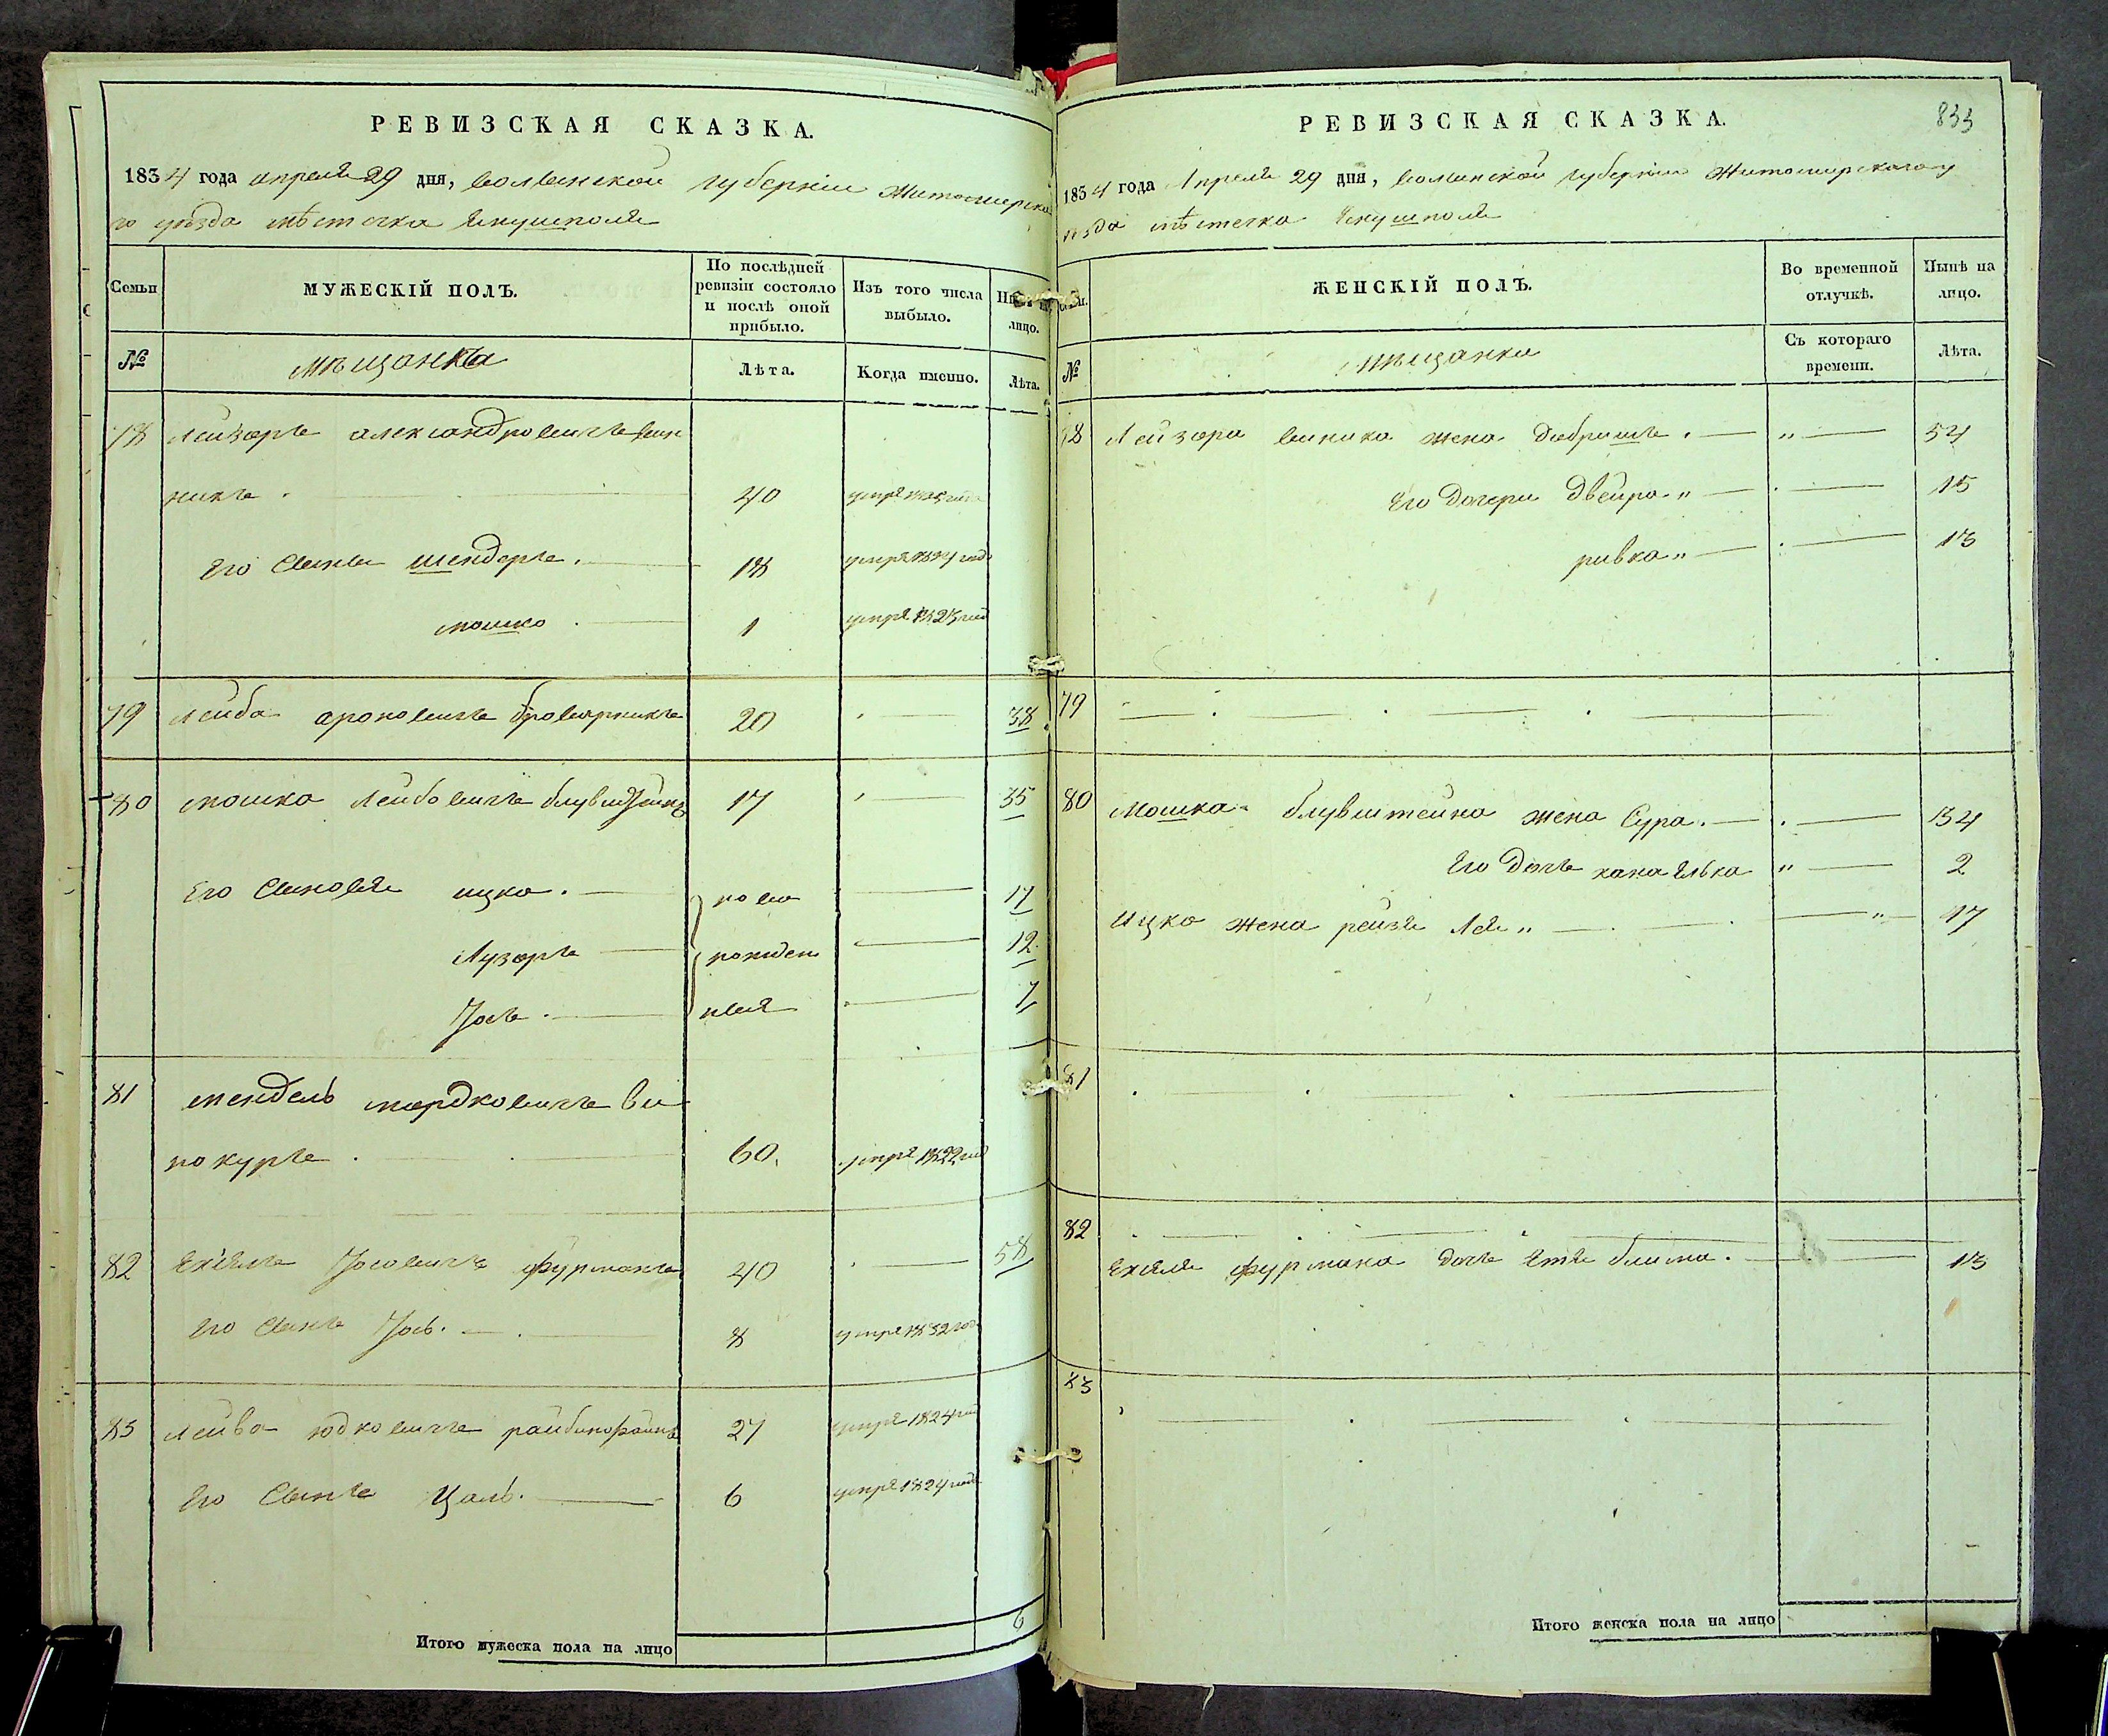 РЕВИЗСКАЯ СКАЗКА.
1834 года апреля 29 дня, волынской губернии Житомирска
го уѣзда мѣстечка Янушполя
Семьи
МУЖЕСКІЙ ПОЛЪ.
По послѣдней ревизіи состояло и послѣ оной прибыло.
Изъ того числа выбыло.
лицо.
№
мѣщанѣ
Лѣта.
Когда именно.
Лѣта.
78 Лейзоръ александровичъ вин
никъ 40
Его Сынъ шендеръ 18
мошко 1
79 Лейба ароновичъ броварникъ 20 38
80 мошко Лейбовичъ блувштейнъ 17 35
Его Сыновя ицко ново 17
Лузоръ рожден 12
Іосъ ныя 7
81 мендель мордковичъ ви
нокуръ 60. умре 1822 год
82 Ехіель Іосовичъ фурманъ 40 58
Его Сынъ Іось 8 умре 1832 год
83 Лейба юдковичъ 27 умре 1824 год
Его Сынъ Цаль 6 умре 1824 год
Итого мужеска пола на лицо 6
РЕВИЗСКАЯ СКАЗКА. 833
1834 года Апреля 29 дня, волынской губернии Житомирскаго у
ѣзда мѣстечка Янушполя
ЖЕНСКІЙ ПОЛЪ.
Во временной отлучкѣ.
Нынѣ на лицо.
№
мѣщанки
Съ котораго времени.
Лѣта.
78 Лейзора виника жена Добришъ 54
Его Дочери Двейра 15
ривка 13
79
80 Мошка блувштейна жена Сура 34
Его Дочь хана Елька 2
Ицко жена рейзя Лея 17
81
82
Ехіеля фурмана дочь Етя блима 13
83
Итого женска пола на лицо